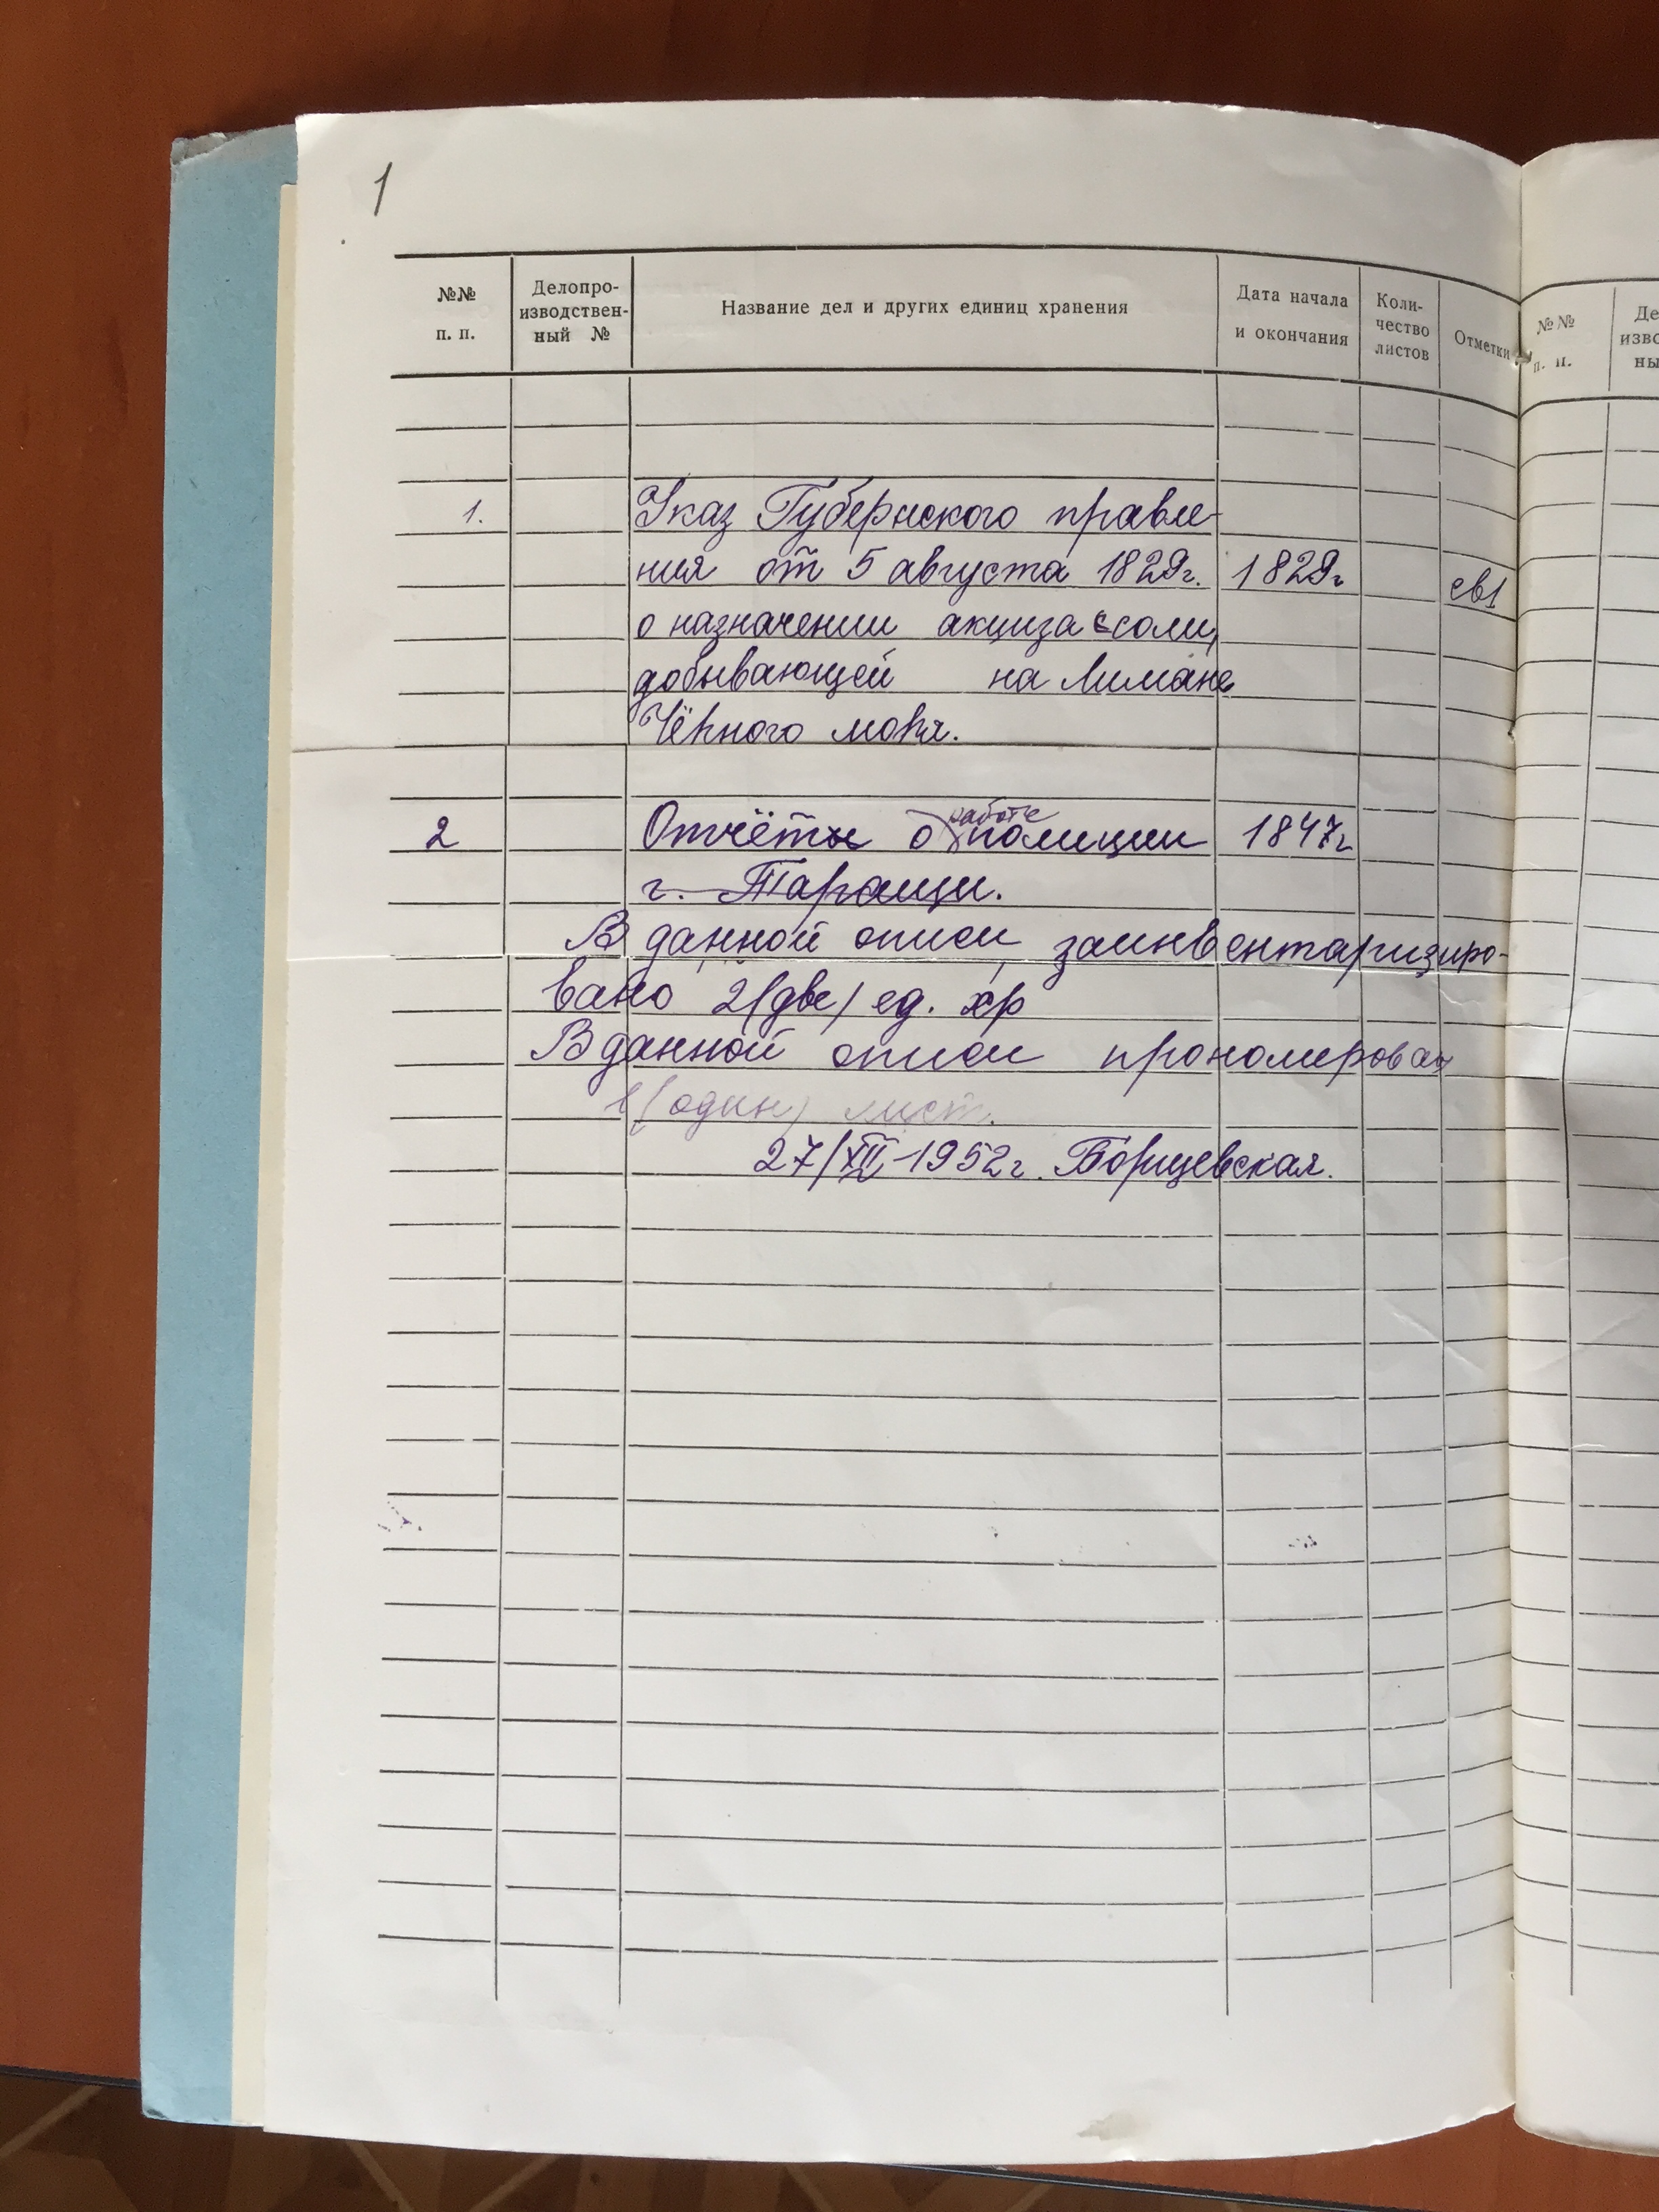 1
№№ п. п.
Делопро-
изводствен-
ный №
Название дел и других единиц хранения
Дата начала
и окончания
Коли-
чество
листов
Отметки
№№
п. п.
Де
изво
ны
1. Указ Губернского правле-
ния от 5 августа 1829г. 1829г св1
о назначении акциза с соли,
добывающей на Лимане
Чёрного моря.
работе
2 Отчёты о полиции 1847г
г. Таращи.
В данной описи заинвентаризиро-
вано 2(две) ед. хр
В данной описи прономерован
1(один) лист.
27/XII-1952г. Борщевская.